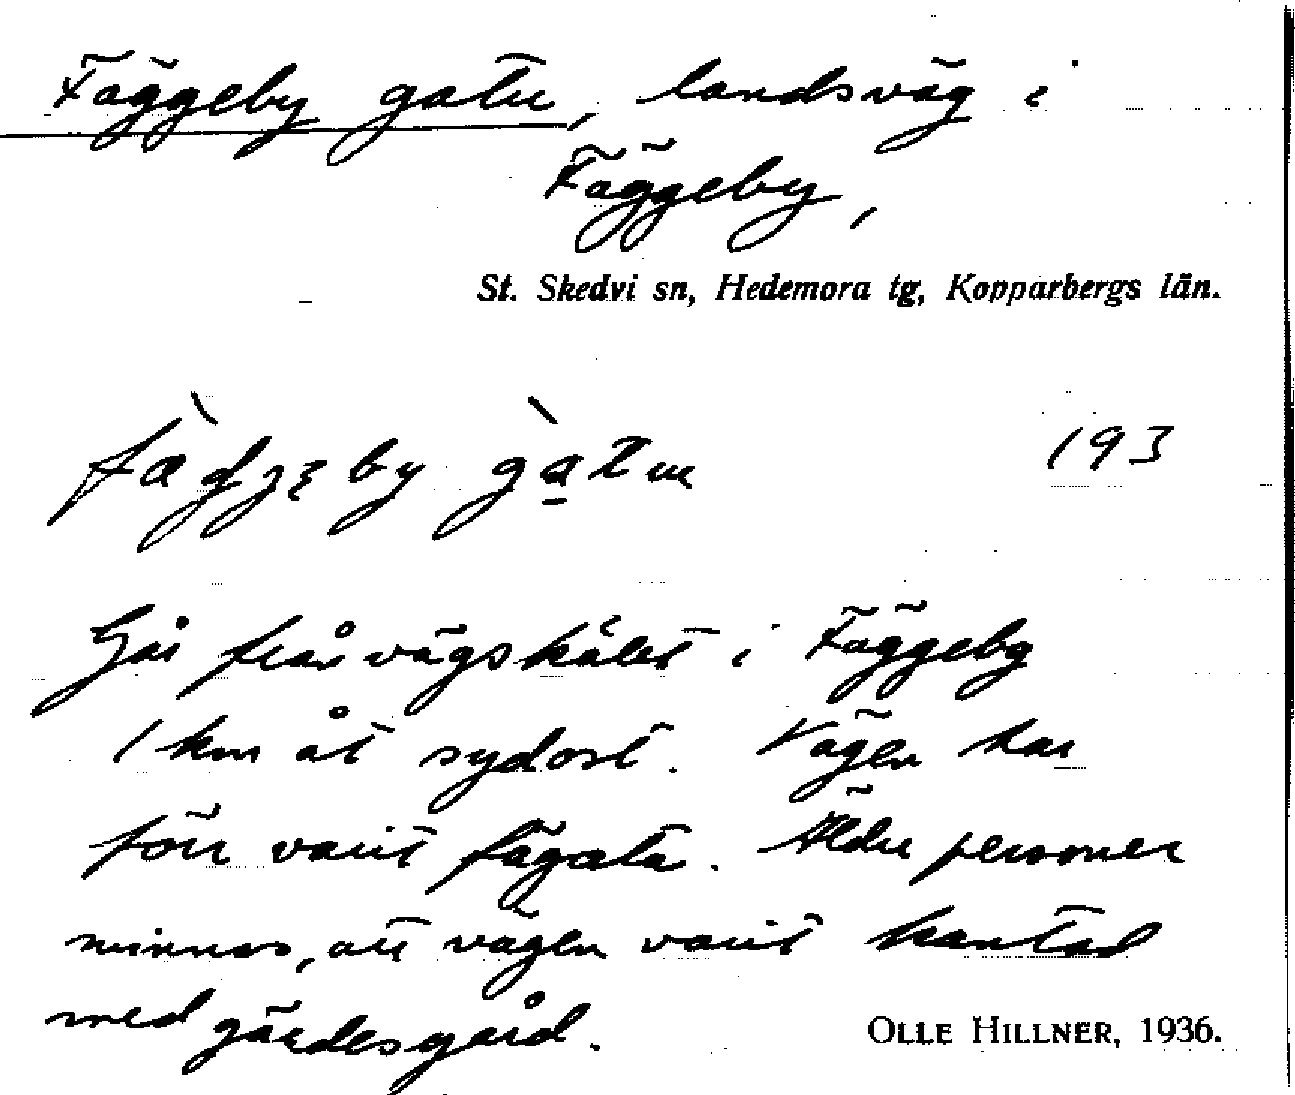 Fäggeby gatu, landsväg i
Fäggeby,
St. Skedvi sn, Hedemora tg, Kopparbergs län.
by gàtu 193
Går från vägskälet i Fäggeby
1 km åt sydost. Vägen har
förr varit fägata. Äldre personer
minnas, att vägen varit kantad
med gärdesgård.
OLLE HILLNER, 1936.